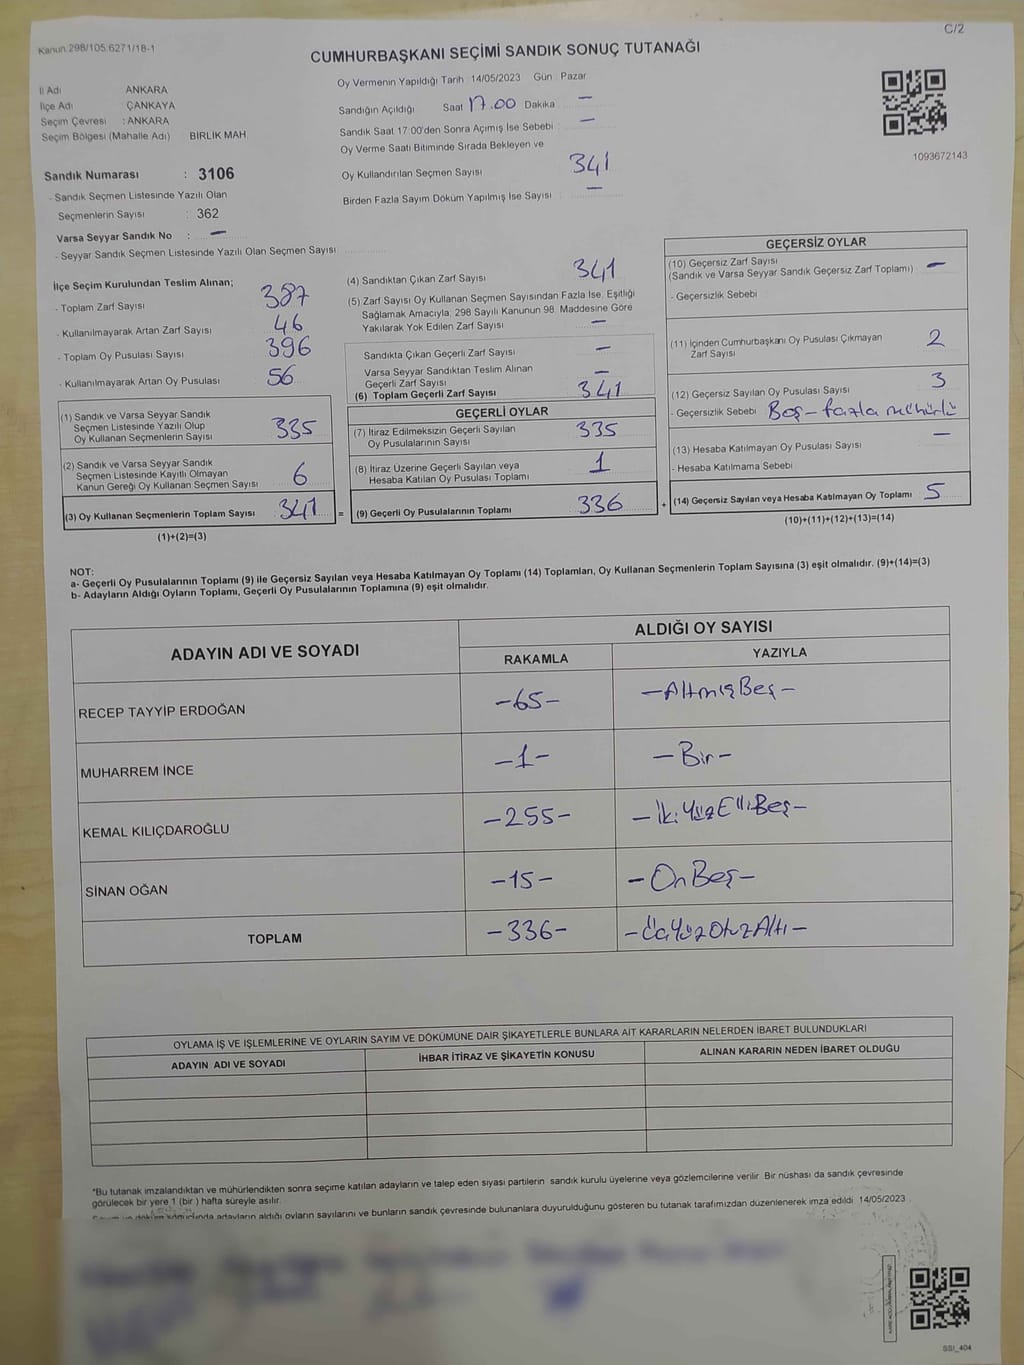 Kanun:298/105:6271/18-1
C/2
CUMHURBAŞKANI SEÇİMİ SANDIK SONUÇ TUTANAĞI
İl Adı ANKARA
İlçe Adı ÇANKAYA
Seçim Çevresi : ANKARA
Seçim Bölgesi (Mahalle Adı) BİRLİK MAH.
Sandık Numarası : 3106
- Sandık Seçmen Listesinde Yazılı Olan
Seçmenlerin Sayısı : 362
Varsa Seyyar Sandık No : —
- Seyyar Sandık Seçmen Listesinde Yazılı Olan Seçmen Sayısı
Oy Vermenin Yapıldığı Tarih 14/05/2023 Gün : Pazar
Sandığın Açıldığı Saat 17.00 Dakika —
Sandık Saat 17:00'den Sonra Açımış İse Sebebi : —
Oy Verme Saati Bitiminde Sırada Bekleyen ve
Oy Kullandırılan Seçmen Sayısı 341
Birden Fazla Sayım Döküm Yapılmış İse Sayısı —
1093672143
İlçe Seçim Kurulundan Teslim Alınan;
- Toplam Zarf Sayısı 387
- Kullanılmayarak Artan Zarf Sayısı 46
- Toplam Oy Pusulası Sayısı 396
- Kullanılmayarak Artan Oy Pusulası 56
(1) Sandık ve Varsa Seyyar Sandık
Seçmen Listesinde Yazılı Olup
Oy Kullanan Seçmenlerin Sayısı 335
(2) Sandık ve Varsa Seyyar Sandık
Seçmen Listesinde Kayıtlı Olmayan
Kanun Gereği Oy Kullanan Seçmen Sayısı 6
(3) Oy Kullanan Seçmenlerin Toplam Sayısı 341 =
(1)+(2)=(3)
(4) Sandıktan Çıkan Zarf Sayısı 341
(5) Zarf Sayısı Oy Kullanan Seçmen Sayısından Fazla İse, Eşitliği
Sağlamak Amacıyla; 298 Sayılı Kanunun 98. Maddesine Göre
Yakılarak Yok Edilen Zarf Sayısı —
Sandıkta Çıkan Geçerli Zarf Sayısı —
Varsa Seyyar Sandıktan Teslim Alınan
Geçerli Zarf Sayısı —
(6) Toplam Geçerli Zarf Sayısı 341
GEÇERLİ OYLAR
(7) İtiraz Edilmeksizin Geçerli Sayılan
Oy Pusulalarının Sayısı 335
(8) İtiraz Üzerine Geçerli Sayılan veya
Hesaba Katılan Oy Pusulası Toplamı 1
(9) Geçerli Oy Pusulalarının Toplamı 336 +
GEÇERSİZ OYLAR
(10) Geçersiz Zarf Sayısı
(Sandık ve Varsa Seyyar Sandık Geçersiz Zarf Toplamı) —
- Geçersizlik Sebebi
(11) İçinden Cumhurbaşkanı Oy Pusulası Çıkmayan
Zarf Sayısı 2
(12) Geçersiz Sayılan Oy Pusulası Sayısı 3
- Geçersizlik Sebebi Boş - fazla mühürlü
(13) Hesaba Katılmayan Oy Pusulası Sayısı —
- Hesaba Katılmama Sebebi
(14) Geçersiz Sayılan veya Hesaba Katılmayan Oy Toplamı 5
(10)+(11)+(12)+(13)=(14)
NOT:
a- Geçerli Oy Pusulalarının Toplamı (9) ile Geçersiz Sayılan veya Hesaba Katılmayan Oy Toplamı (14) Toplamları, Oy Kullanan Seçmenlerin Toplam Sayısına (3) eşit olmalıdır. (9)+(14)=(3)
b- Adayların Aldığı Oyların Toplamı, Geçerli Oy Pusulalarının Toplamına (9) eşit olmalıdır.
ADAYIN ADI VE SOYADI ALDIĞI OY SAYISI
RAKAMLA YAZIYLA
RECEP TAYYİP ERDOĞAN -65- -Altmış Beş-
MUHARREM İNCE -1- -Bir-
KEMAL KILIÇDAROĞLU -255- -İki Yüz Elli Beş-
SİNAN OĞAN -15- -On Beş-
TOPLAM -336- -Üç Yüz Otuz Altı-
OYLAMA İŞ VE İŞLEMLERİNE VE OYLARIN SAYIM VE DÖKÜMÜNE DAİR ŞİKAYETLERLE BUNLARA AİT KARARLARIN NELERDEN İBARET BULUNDUKLARI
ADAYIN ADI VE SOYADI İHBAR İTİRAZ VE ŞİKAYETİN KONUSU ALINAN KARARIN NEDEN İBARET OLDUĞU
*Bu tutanak imzalandıktan ve mühürlendikten sonra seçime katılan adayların ve talep eden siyasi partilerin sandık kurulu üyelerine veya gözlemcilerine verilir. Bir nüshası da sandık çevresinde
görülecek bir yere 1 (bir) hafta süreyle asılır.
Sayım ve döküm sonucunda adayların aldığı oyların sayılarını ve bunların sandık çevresinde bulunanlara duyurulduğunu gösteren bu tutanak tarafımızdan düzenlenerek imza edildi. 14/05/2023
SSI_404